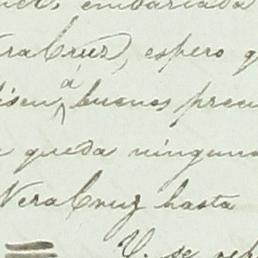 embarcada
VeraCruz, espero q
á buenos precio
queda ninguna
VeraCruz hasta
V. se